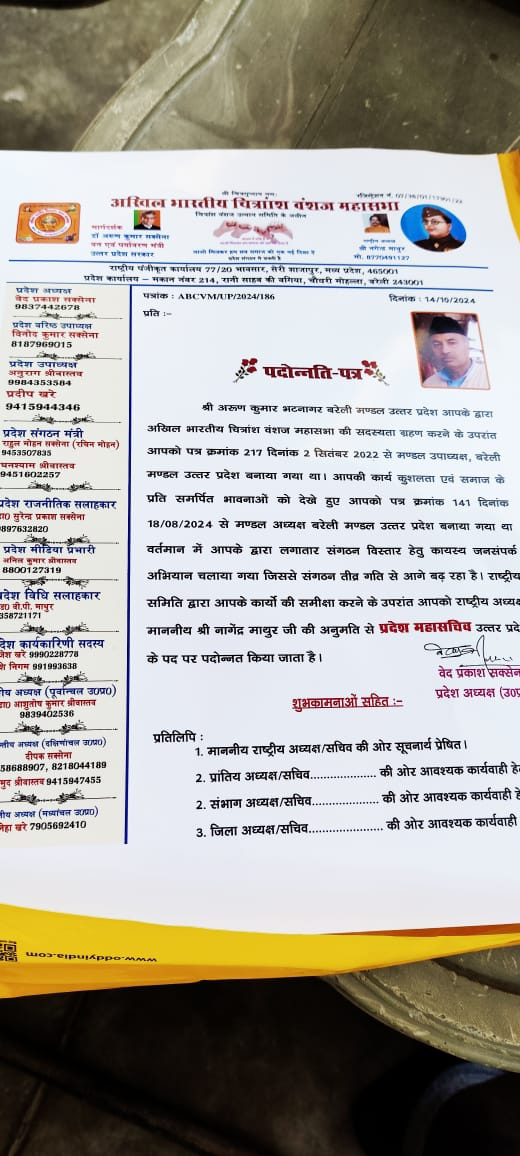 श्री चित्रगुप्ताय नमः
रजिस्ट्रेशन नं.
अखिल भारतीय चित्रांश वंशज महासभा
चित्रांश वंशज उत्थान समिति के अधीन
मार्गदर्शक
डॉ अरुण कुमार सक्सेना
वन एवं पर्यावरण मंत्री
उत्तर प्रदेश सरकार
राष्ट्रीय अध्यक्ष
श्री नागेन्द्र माथुर
मो. 8770491127
राष्ट्रीय पंजीकृत कार्यालय 77/20 भावसार, सेरी शाजापुर, मध्य प्रदेश, 465001
प्रदेश कार्यालय - मकान नंबर 214, रानी साहब की बगिया, चौधरी मोहल्ला, बरेली 243001
प्रदेश अध्यक्ष
वेद प्रकाश सक्सेना
9837442678
प्रदेश वरिष्ठ उपाध्यक्ष
विनोद कुमार सक्सेना
8187969015
प्रदेश उपाध्यक्ष
अनुराग श्रीवास्तव
9984353584
प्रदीप खरे
9415944346
प्रदेश संगठन मंत्री
राहुल मोहन सक्सेना (रचिन मोहन)
9453507835
घनश्याम श्रीवास्तव
9451602257
प्रदेश राजनीतिक सलाहकार
डा0 सुरेन्द्र प्रकाश सक्सेना
9897632820
प्रदेश मीडिया प्रभारी
अनिल कुमार श्रीवास्तव
8800127319
प्रदेश विधि सलाहकार
वी.पी. माथुर
358721171
प्रदेश कार्यकारिणी सदस्य
खरे 9990228778
निगम 991993638
अध्यक्ष (पूर्वान्चल उ0प्र0)
डा0 आशुतोष कुमार श्रीवास्तव
9839402536
अध्यक्ष (दक्षिणांचल उ0प्र0)
दीपक सक्सेना
58688907, 8218044189
श्रीवास्तव 9415947455
अध्यक्ष (मध्यांचल उ0प्र0)
खरे 7905692410
पत्रांक : ABCVM/UP/2024/186
दिनांक : 14/10/2024
प्रति :-
पदोन्नति-पत्र
श्री अरुण कुमार भटनागर बरेली मण्डल उत्तर प्रदेश आपके द्वारा
अखिल भारतीय चित्रांश वंशज महासभा की सदस्यता ग्रहण करने के उपरांत
आपको पत्र क्रमांक 217 दिनांक 2 सितंबर 2022 से मण्डल उपाध्यक्ष, बरेली
मण्डल उत्तर प्रदेश बनाया गया था। आपकी कार्य कुशलता एवं समाज के
प्रति समर्पित भावनाओं को देखे हुए आपको पत्र क्रमांक 141 दिनांक
18/08/2024 से मण्डल अध्यक्ष बरेली मण्डल उत्तर प्रदेश बनाया गया था
वर्तमान में आपके द्वारा लगातार संगठन विस्तार हेतु कायस्थ जनसंपर्क
अभियान चलाया गया जिससे संगठन तीव्र गति से आगे बढ़ रहा है। राष्ट्रीय
समिति द्वारा आपके कार्यो की समीक्षा करने के उपरांत आपको राष्ट्रीय अध्यक्ष
माननीय श्री नागेंद्र माथुर जी की अनुमति से प्रदेश महासचिव उत्तर प्रदे
के पद पर पदोन्नत किया जाता है।
वेद प्रकाश सक्सेन
प्रदेश अध्यक्ष (उ0प्र
शुभकामनाओं सहित :-
प्रतिलिपि :
1. माननीय राष्ट्रीय अध्यक्ष/सचिव की ओर सूचनार्थ प्रेषित।
2. प्रांतिय अध्यक्ष/सचिव.................. की ओर आवश्यक कार्यवाही हे
2. संभाग अध्यक्ष/सचिव.................. की ओर आवश्यक कार्यवाही हे
3. जिला अध्यक्ष/सचिव.................... की ओर आवश्यक कार्यवाही
www.oddyindia.com